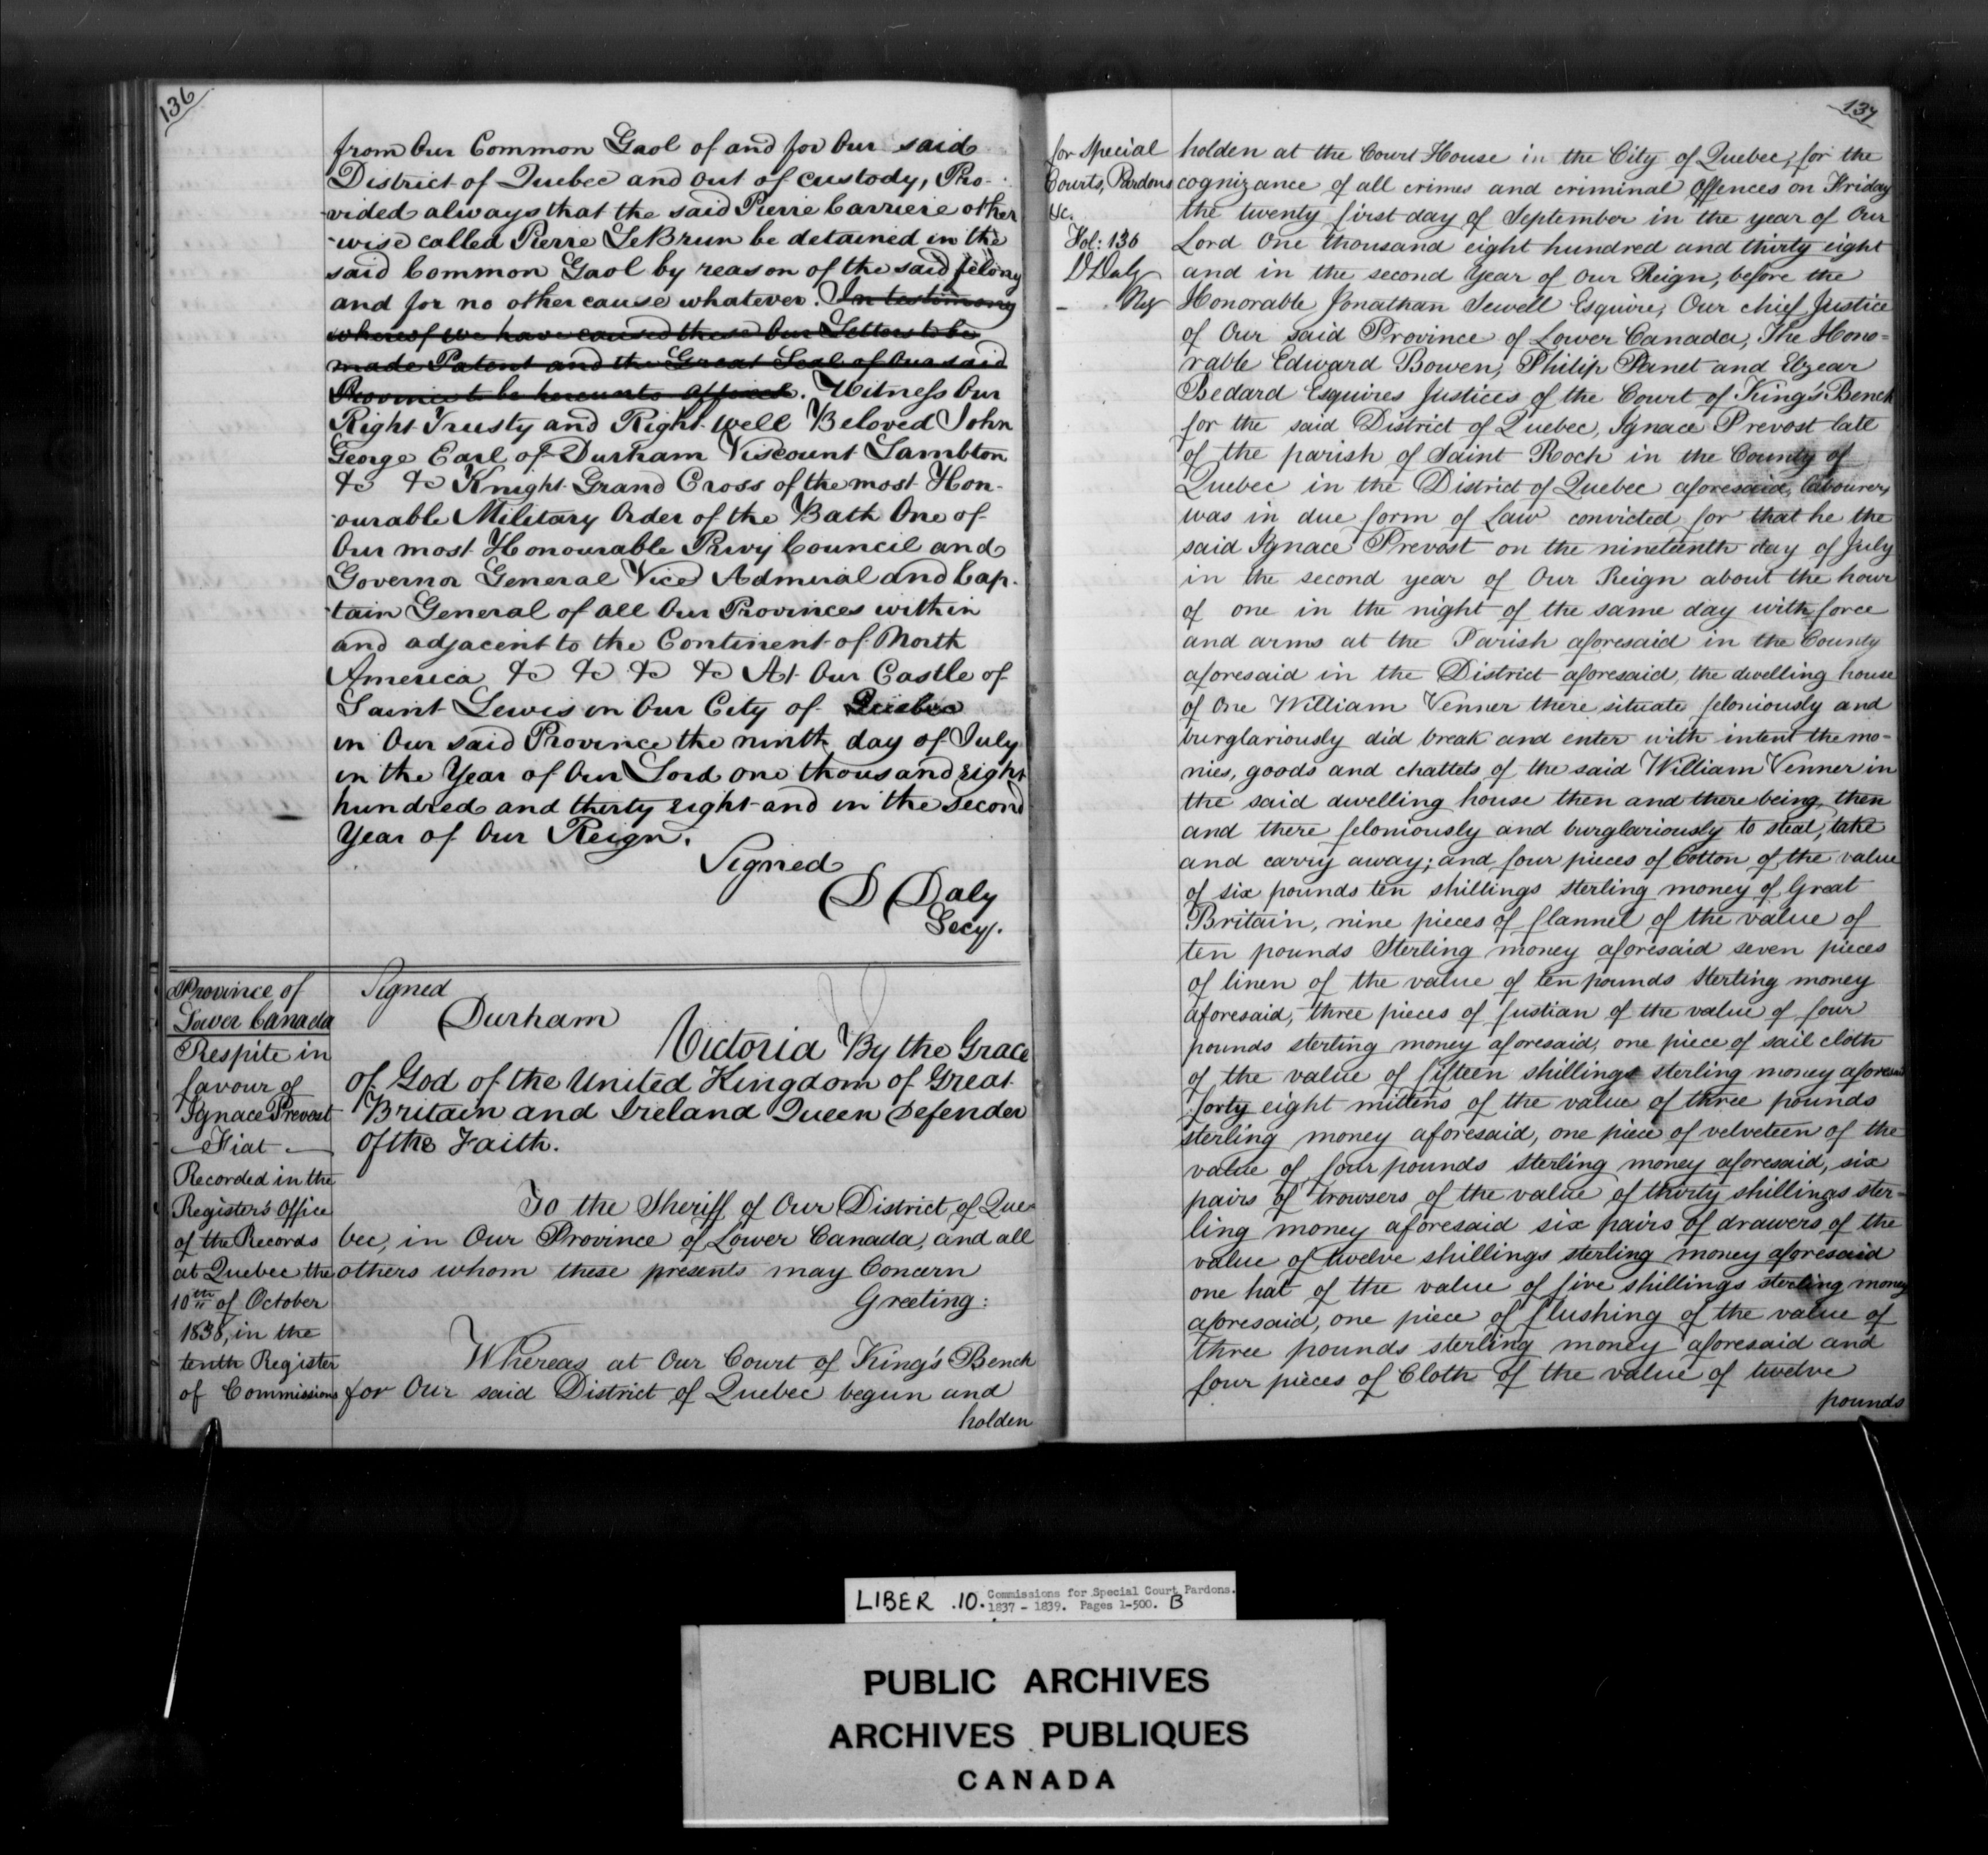 136
from Our Common Gaol of and for Our said
District of Quebec and out of custody, Pro-
-vided always that the said Pierre Carriere other
-wise called Pierre LeBrun be detained in the
said Common Gaol by reason of the said felony
and for no other cause whatever. In testimony
whereof We have caused these Our Letters to be
made Patent and the Great Seal of Our said
Province to be hereunto affixed. Witness Our
Right Trusty and Right well Beloved John
George Earl of Durham Viscount Lambton
&c &c Knight Grand Cross of the most Hon-
-ourable Military Order of the Bath One of
Our most Honourable Privy Council and
Governor General Vice Admiral and Cap-
-tain General of all Our Provinces within
and adjacent to the Continent of North
America &c &c &c &c At Our Castle of
Saint Lewis in Our City of Quebec
in Our said Province the ninth day of July
in the Year of Our Lord one thousand eight
hundred and thirty eight and in the second
Year of Our Reign.
Signed
D Daly
Secy.
Province of
Lower Canada
Respite in
favour of
Ignace Prevost
Fiat
Recorded in the
Register's Office
of the Records
at Quebec the
10th of October
1838, in the
tenth Register
of Commissions
Signed
Durham
Victoria By the Grace
of God of the United Kingdom of Great
Britain and Ireland Queen Defender
of the Faith.
To the Sheriff of Our District of Que-
bec, in Our Province of Lower Canada, and all
others whom these presents may Concern
Greeting:
Whereas at Our Court of King's Bench
for Our said District of Quebec begun and
holden
137
for Special
Courts, Pardons
&c.
Fol: 136
D Daly
Reg
holden at the Court House in the City of Quebec, for the
cognizance of all crimes and criminal Offences on Friday
the twenty first day of September in the year of Our
Lord One thousand eight hundred and thirty eight
and in the second Year of Our Reign, before the
Honorable Jonathan Sewell Esquire, Our chief Justice
of Our said Province of Lower Canada, The Hono-
rable Edward Bowen, Philip Panet and Elzear
Bedard Esquires Justices of the Court of King's Bench
for the said District of Quebec, Ignace Prevost late
of the parish of Saint Roch in the County of
Quebec in the District of Quebec aforesaid, labourer,
was in due form of Law convicted for that he the
said Ignace Prevost on the nineteenth day of July
in the second year of Our Reign about the hour
of one in the night of the same day with force
and arms at the Parish aforesaid in the County
aforesaid in the District aforesaid, the dwelling house
of One William Venner there situate feloniously and
burglariously did break and enter with intent the mo-
nies, goods and chattels of the said William Venner in
the said dwelling house then and there being, then
and there feloniously and burglariously to steal, take
and carry away; and four pieces of Cotton of the value
of six pounds ten shillings sterling money of Great
Britain, nine pieces of flannel of the value of
ten pounds Sterling money aforesaid seven pieces
of linen of the value of ten pounds sterling money
aforesaid, three pieces of fustian of the value of four
pounds sterling money aforesaid, one piece of sail cloth
of the value of fifteen shillings sterling money aforesaid
forty eight mittens of the value of three pounds
sterling money aforesaid, one piece of velveteen of the
value of four pounds sterling money aforesaid, six
pairs of trowsers of the value of thirty shillings ster-
ling money aforesaid six pairs of drawers of the
value of twelve shillings sterling money aforesaid
one hat of the value of five shillings sterling money
aforesaid, one piece of flushing of the value of
three pounds sterling money aforesaid and
four pieces of Cloth of the value of twelve
pounds
LIBER .10. Commissions for Special Court Pardons.
1837 - 1839. Pages 1-500. B
PUBLIC ARCHIVES
ARCHIVES PUBLIQUES
CANADA